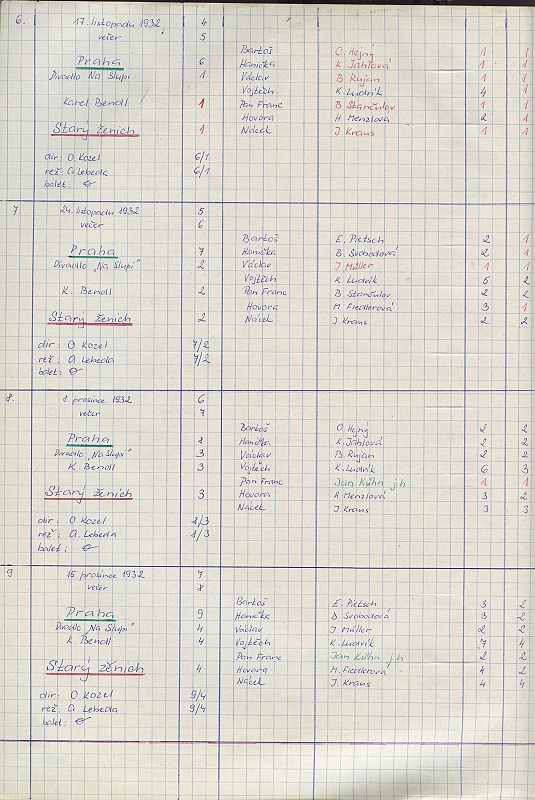 6. 17. listopadu 1932 4
večer 5
Bartoš O. Hejný 1 1
Praha 6 Hanička K. Jáhlová 1 1
Divadlo Na Slupi 1 Václav B. Rujan 1 1
Vojtěch K. Ludvík 4 1
Karel Bendl 1 Pan Franc B. Stančulov 1 1
Hovora H Menzlová 2 1
Starý ženich 1 Nácek J Kraus 1 1
dir: O. Kozel 6/1
rež: A. Lebeda 6/1
balet:
7 24. listopadu 1932 5
večer 6
Bartoš E. Pietsch 2 1
Praha 7 Hanička B. Svobodová 2 1
Divadlo „Na Slupi" 2 Václav J Müller 1 1
Vojtěch K Ludvík 5 2
K. Bendl 2 Pan Franc B Stančulov 2 2
Hovora M. Fiedlerová 3 1
Starý ženich 2 Nácek J Kraus 2 2
dir: O Kozel 7/2
rež: A Lebeda 7/2
balet:
8. 8. prosince 1932 6
večer 7
Bartoš O. Hejný 2 2
Praha 8 Hanička K. Jáhlová 2 2
Divadlo „Na Slupi" 3 Václav B. Rujan 2 2
K. Bendl 3 Vojtěch K. Ludvík 6 3
Pan Franc Jan Kühn j.h 1 1
Starý ženich 3 Hovora A Menzlová 3 2
Nácek J. Kraus 3 3
dir: O Kozel 8/3
rež: A. Lebeda 8/3
balet:
9 15. prosince 1932 7
večer 8
Bartoš E. Pietsch 3 2
Praha 9 Hanička B Svobodová 3 2
Divadlo „Na Slupi" 4 Václav J Müller 2 2
K Bendl 4 Vojtěch K. Ludvík 7 4
Pan Franc Jan Kühn j.h 2 2
Starý ženich 4 Hovora M. Fiedlerová 4 2
Nácek J. Kraus 4 4
dir: O Kozel 9/4
rež: A. Lebeda 9/4
balet: